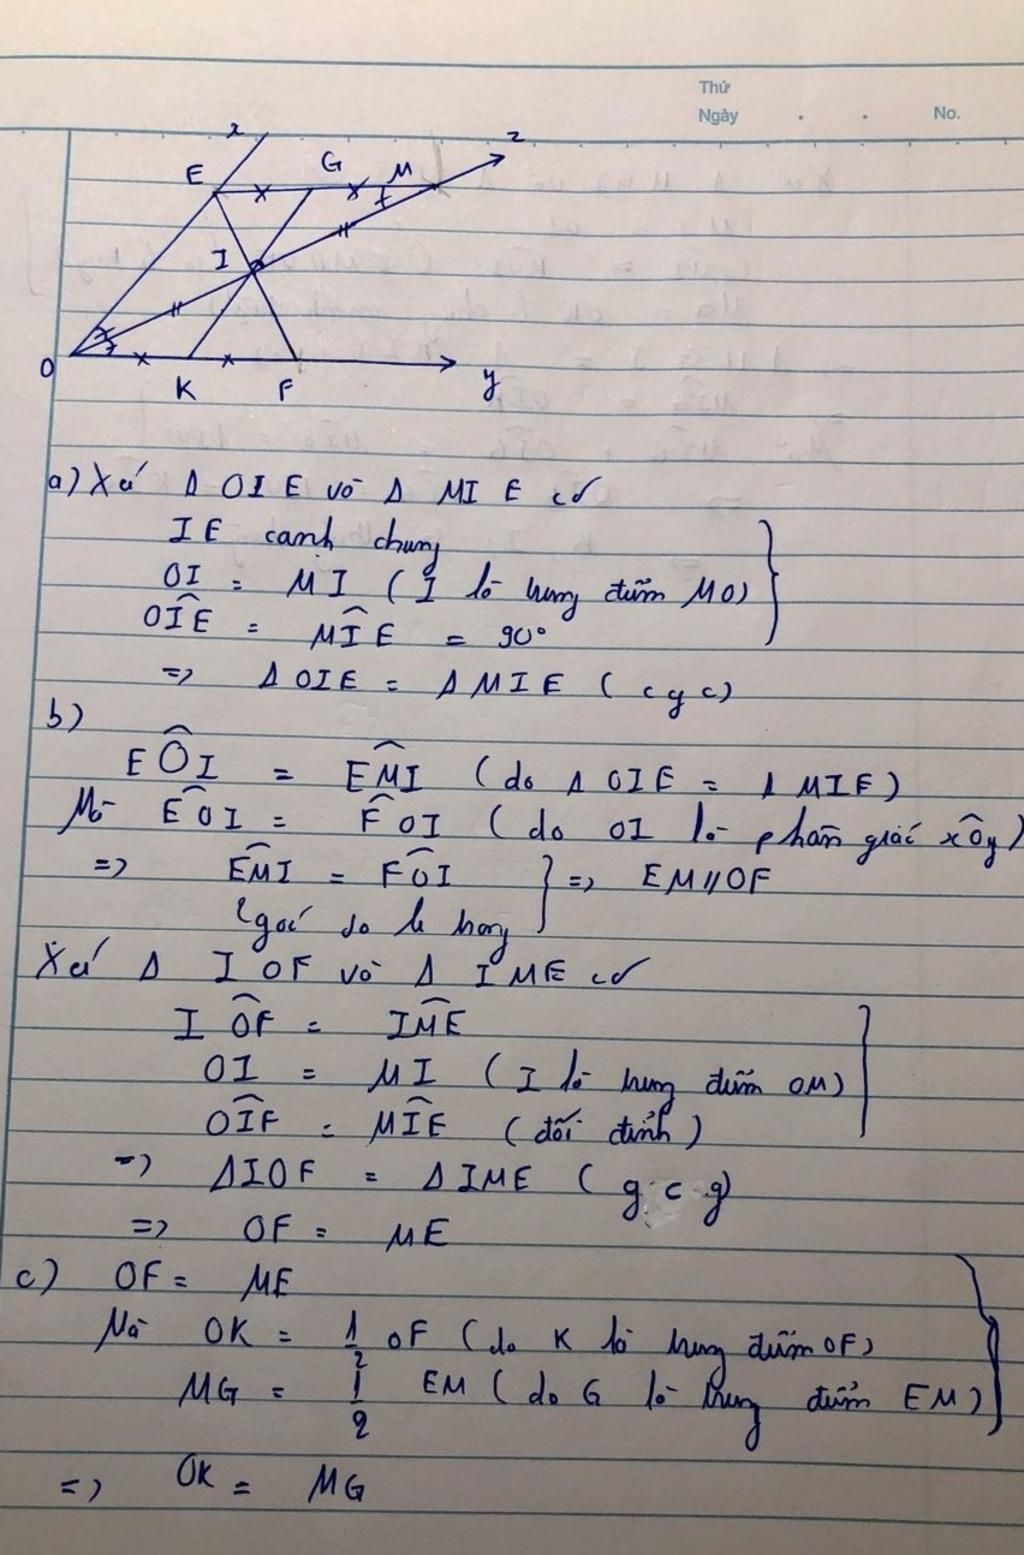 Thứ
Ngày . . No.
x
z
E
G
M
I
O
K
F
y
a) Xét Δ OIE và Δ MIE có
IE cạnh chung
OI = MI ( I là trung điểm MO)
OIE = MIE = 90°
=> Δ OIE = Δ MIE ( cgc)
b)
EOI = EMI ( do Δ OIE = Δ MIE)
Mà EOI = FOI ( do OI là phân giác xOy)
=> EMI = FOI } => EM // OF
(góc so le trong
Xét Δ IOF và Δ IME có
IOF = IME
OI = MI ( I là trung điểm OM)
OIF = MIE ( đối đỉnh )
=> ΔIOF = ΔIME ( g c g)
=> OF = ME
c) OF = ME
Mà OK = 1/2 OF ( do K là trung điểm OF)
MG = 1/2 EM ( do G là trung điểm EM)
=> OK = MG